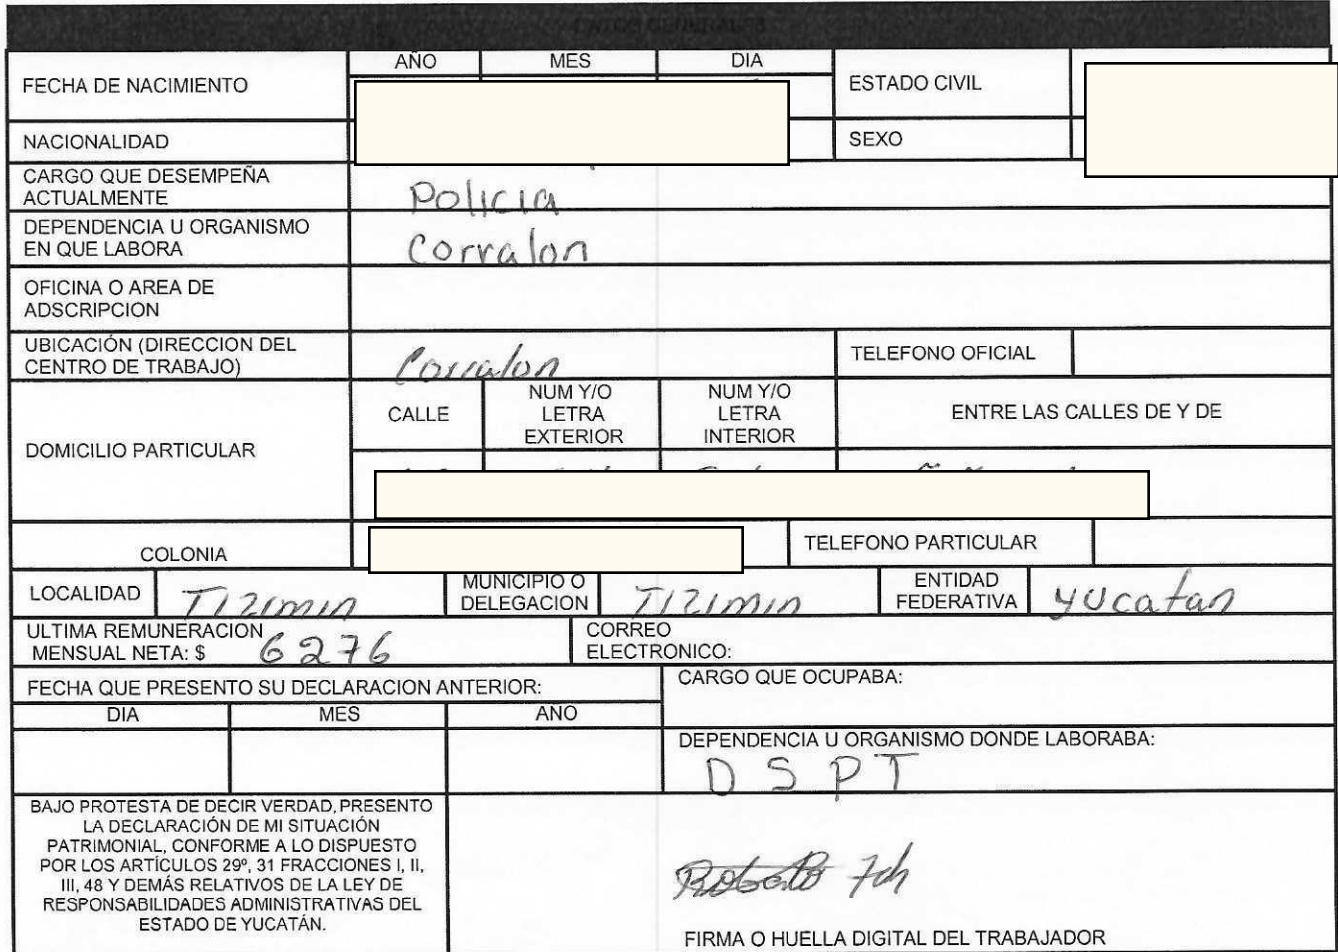 DATOS GENERALES
FECHA DE NACIMIENTO
AÑO MES DIA
ESTADO CIVIL
NACIONALIDAD
SEXO
CARGO QUE DESEMPEÑA
ACTUALMENTE
Policia
DEPENDENCIA U ORGANISMO
EN QUE LABORA
Corralon
OFICINA O AREA DE
ADSCRIPCION
UBICACIÓN (DIRECCION DEL
CENTRO DE TRABAJO)
Corralon
TELEFONO OFICIAL
DOMICILIO PARTICULAR
CALLE
NUM Y/O
LETRA
EXTERIOR
NUM Y/O
LETRA
INTERIOR
ENTRE LAS CALLES DE Y DE
COLONIA
TELEFONO PARTICULAR
LOCALIDAD
Tizimin
MUNICIPIO O
DELEGACION
Tizimin
ENTIDAD
FEDERATIVA
yucatan
ULTIMA REMUNERACION
MENSUAL NETA: $ 6276
CORREO
ELECTRONICO:
FECHA QUE PRESENTO SU DECLARACION ANTERIOR:
DIA MES ANO
CARGO QUE OCUPABA:
DEPENDENCIA U ORGANISMO DONDE LABORABA:
D S P T
BAJO PROTESTA DE DECIR VERDAD, PRESENTO
LA DECLARACIÓN DE MI SITUACIÓN
PATRIMONIAL, CONFORME A LO DISPUESTO
POR LOS ARTÍCULOS 29º, 31 FRACCIONES I, II,
III, 48 Y DEMÁS RELATIVOS DE LA LEY DE
RESPONSABILIDADES ADMINISTRATIVAS DEL
ESTADO DE YUCATÁN.
FIRMA O HUELLA DIGITAL DEL TRABAJADOR